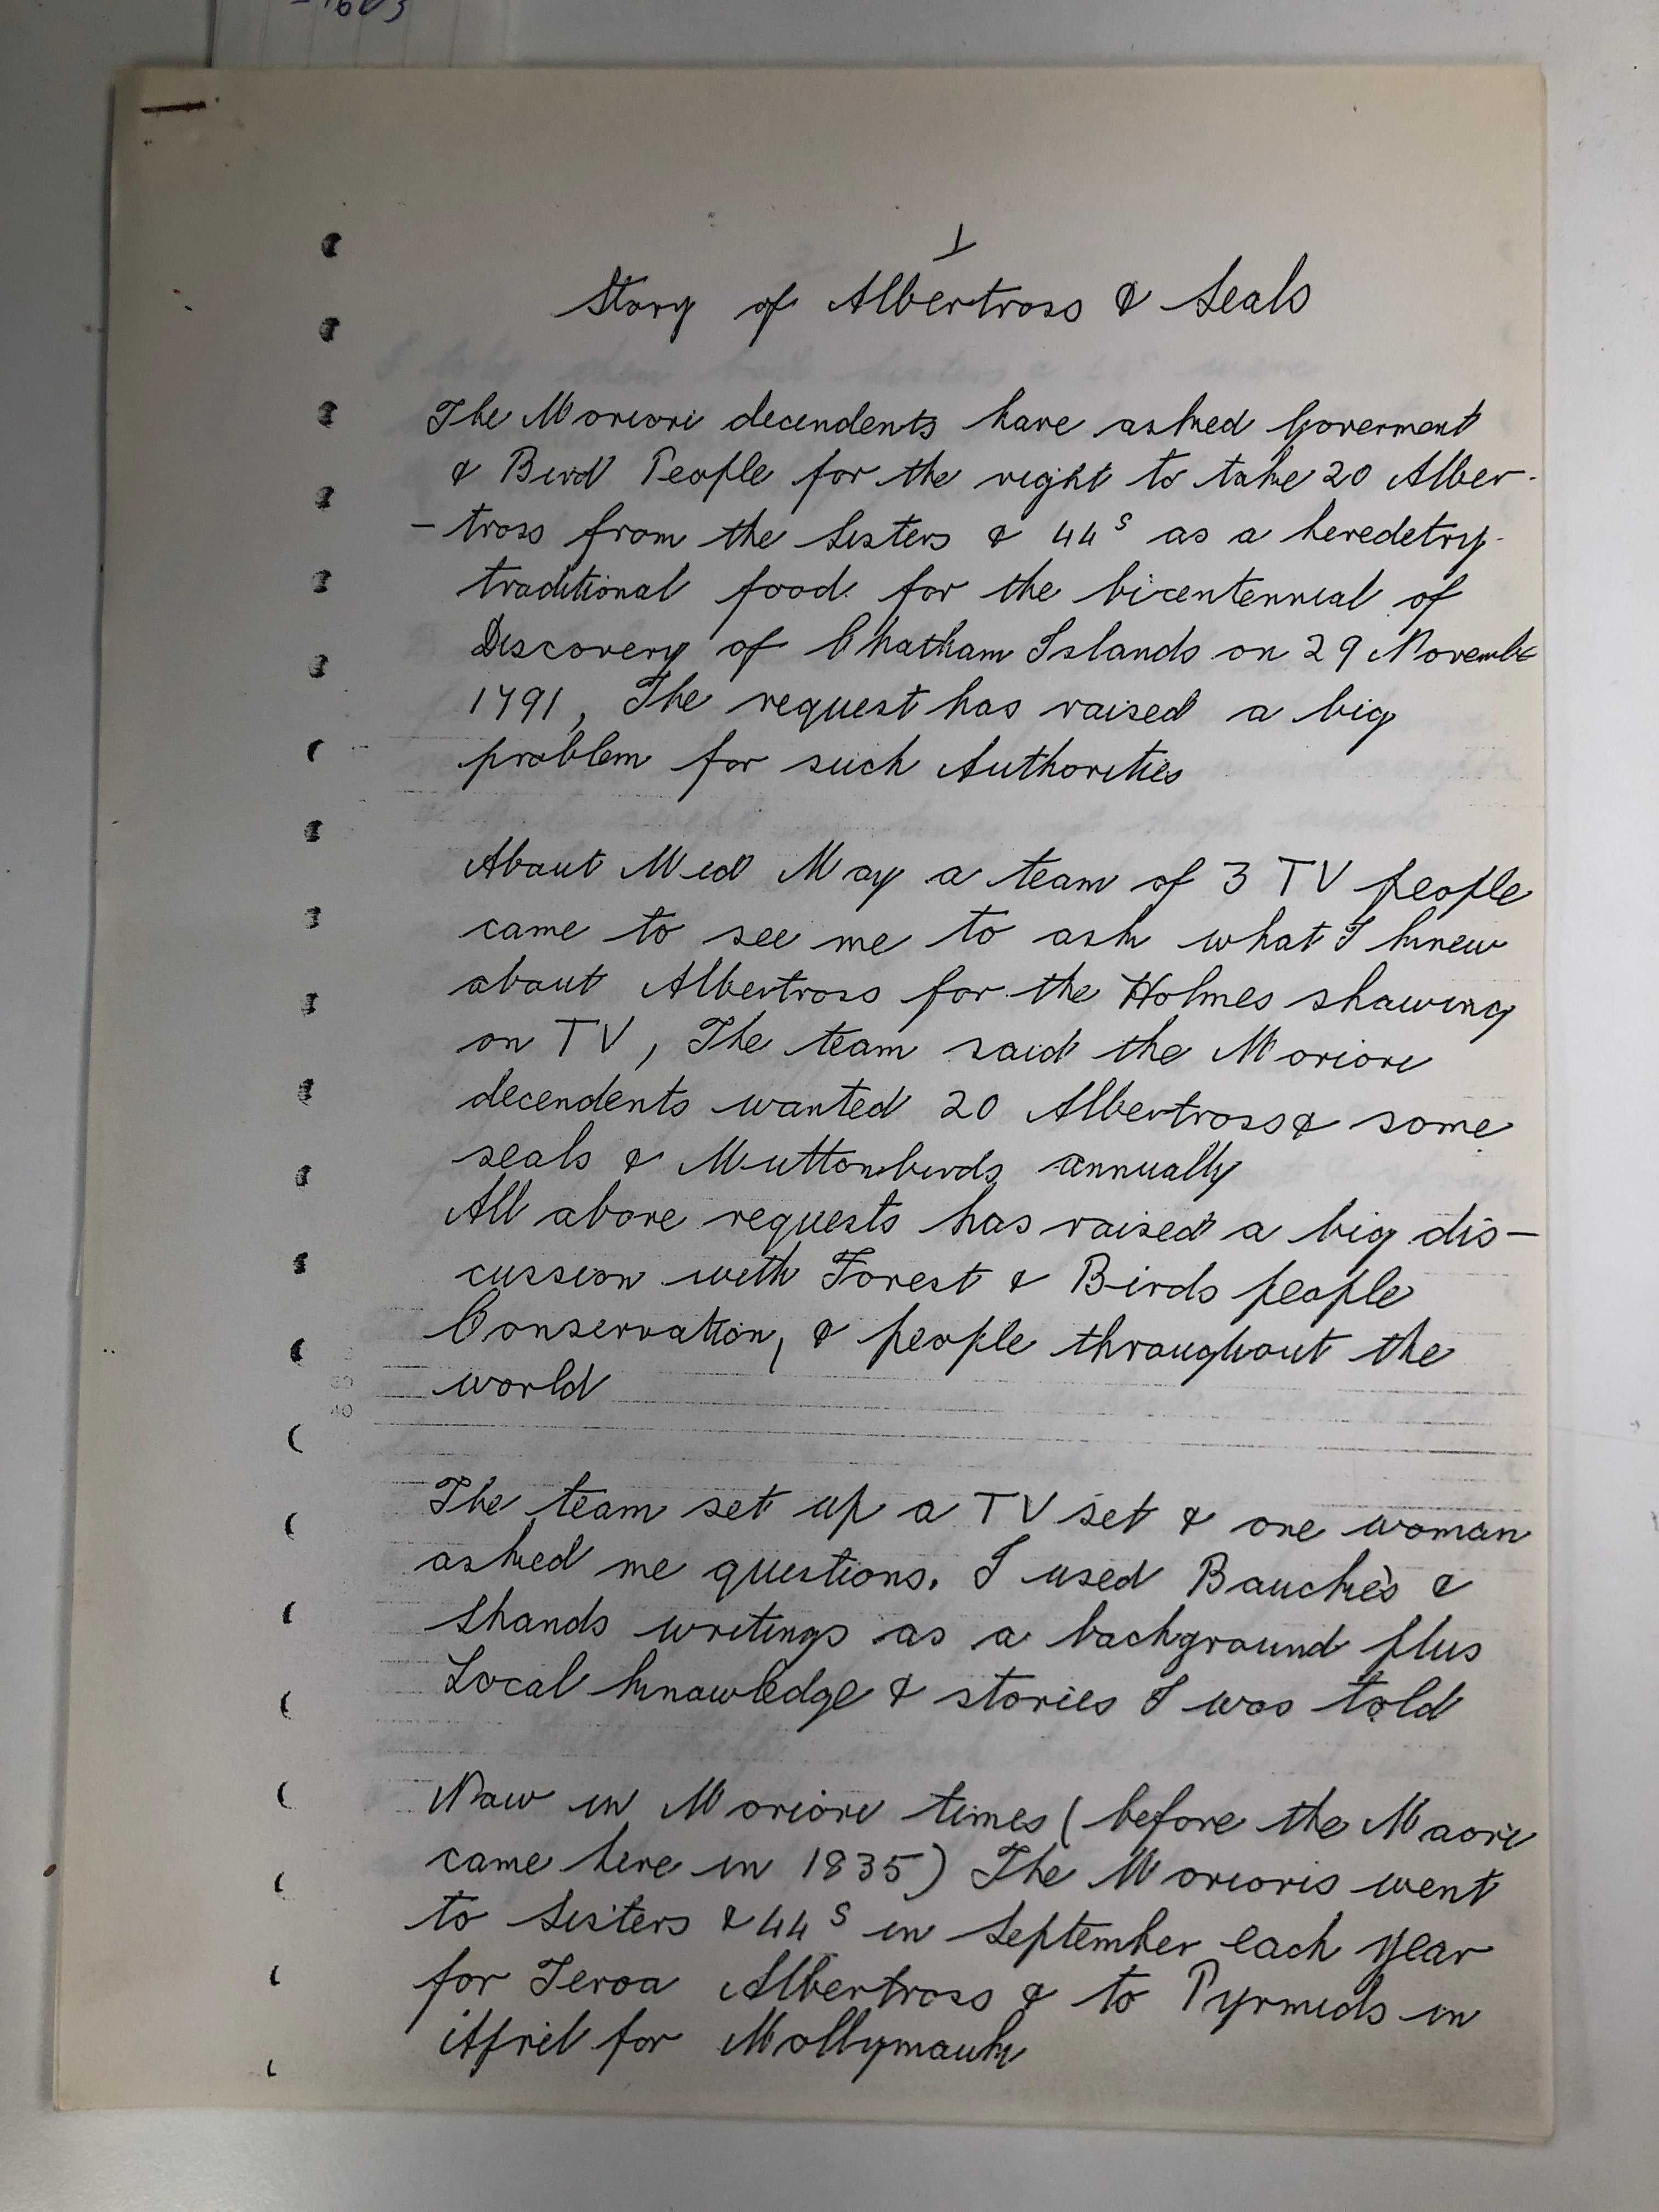 1
Story of Albertross & Seals
The Moriori decendents have asked Goverment
& Bird People for the right to take 20 Alber-
-tross from the Sisters & 44s as a heredetry
traditional food for the bicentennial of
Discovery of Chatham Islands on 29 Novembe
1791, The request has raised a big
problem for such Authorities
About Mid May a team of 3 TV people
came to see me to ask what I knew
about Albertross for the Holmes showing
on TV, The team said the Moriori
decendents wanted 20 Albertross & some
seals & Muttonbirds annually
All above requests has raised a big dis-
cussion with Forest & Birds people
Conservation, & people throughout the
world
The team set up a TV set & one woman
asked me questions. I used Bauche's &
Shands writings as a background plus
Local knowledge & stories I was told
Now in Moriori times (before the Maori
came here in 1835) The Morioris went
to Sisters & 44s in September each year
for Teroa Albertross & to Pyrmids in
April for Mollymauk